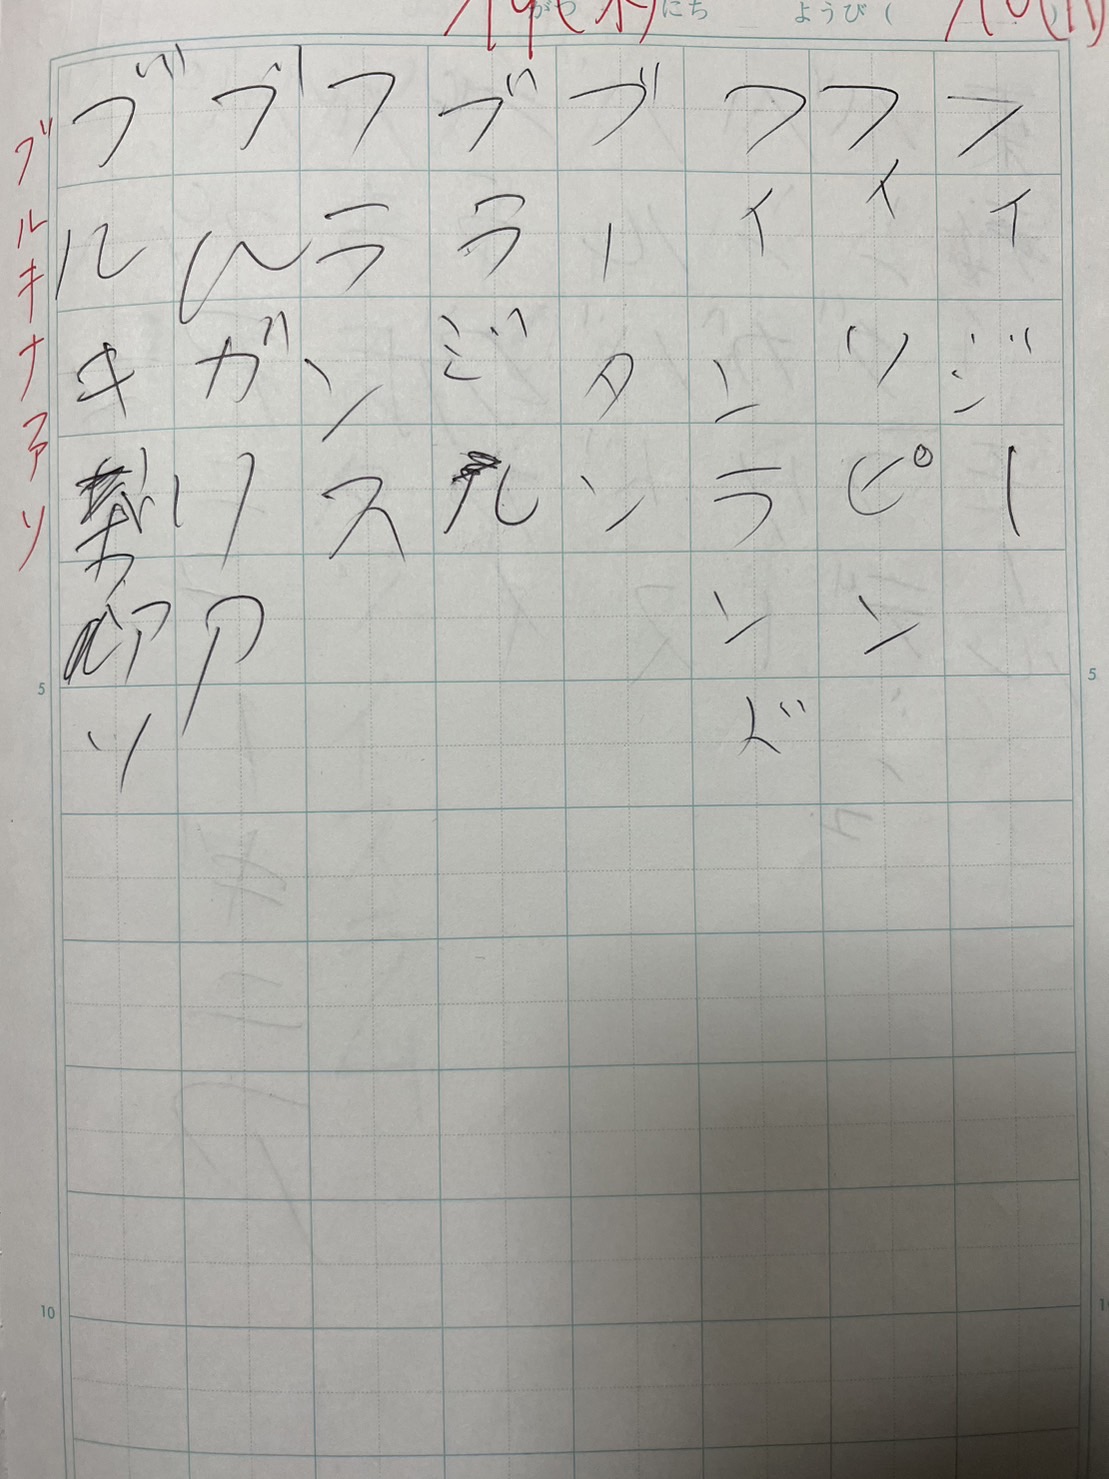 がつ にち ようび(
フィジー
フィリピン
フィンランド
ブータン
ブラジル
フランス
ブルガリア
ブルキナファソ
ブルキナファソ
5
5
10